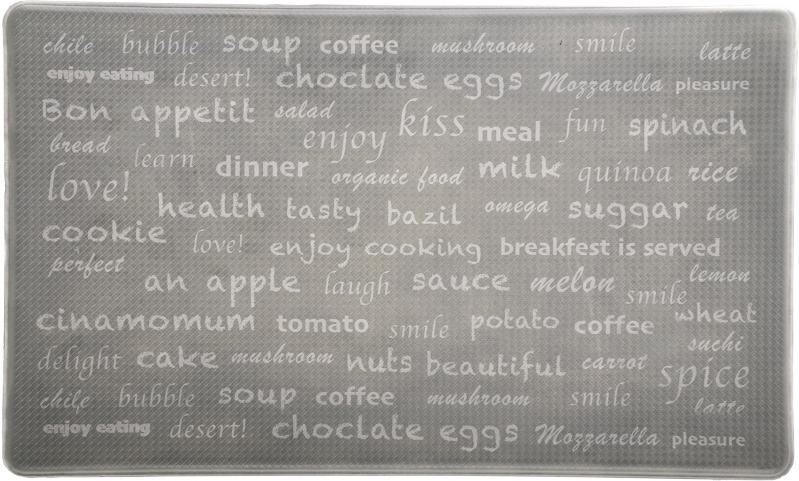 chile bubble soup coffee mushroom smile latte
enjoy eating desert! choclate eggs Mozzarella pleasure
Bon appetit salad enjoy kiss meal fun spinach
bread learn dinner organic food milk quinoa rice
love! health tasty bazil omega suggar tea
cookie love! enjoy cooking breakfest is served
perfect an apple laugh sauce melon smile lemon
cinamomum tomato smile potato coffee wheat
suchi
delight cake mushroom nuts beautiful carrot spice
chile bubble soup coffee mushroom smile latte
enjoy eating desert! choclate eggs Mozzarella pleasure